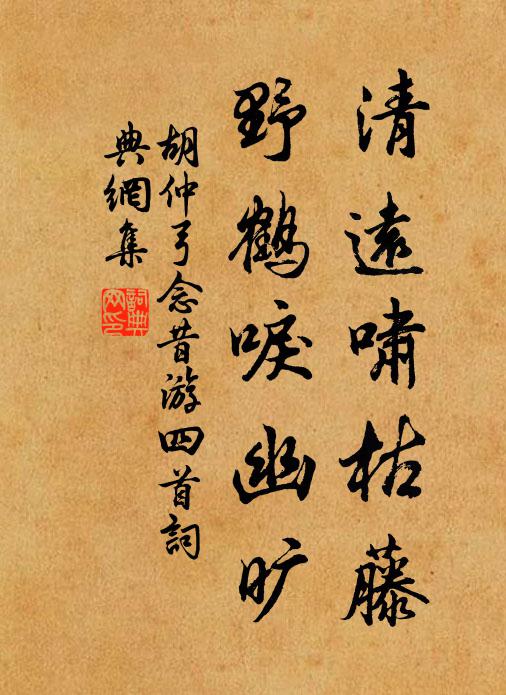 清遠嘯枯藤
野鶴唳幽旷
胡仲弓念昔游四首詞
典網集
詞典
网印